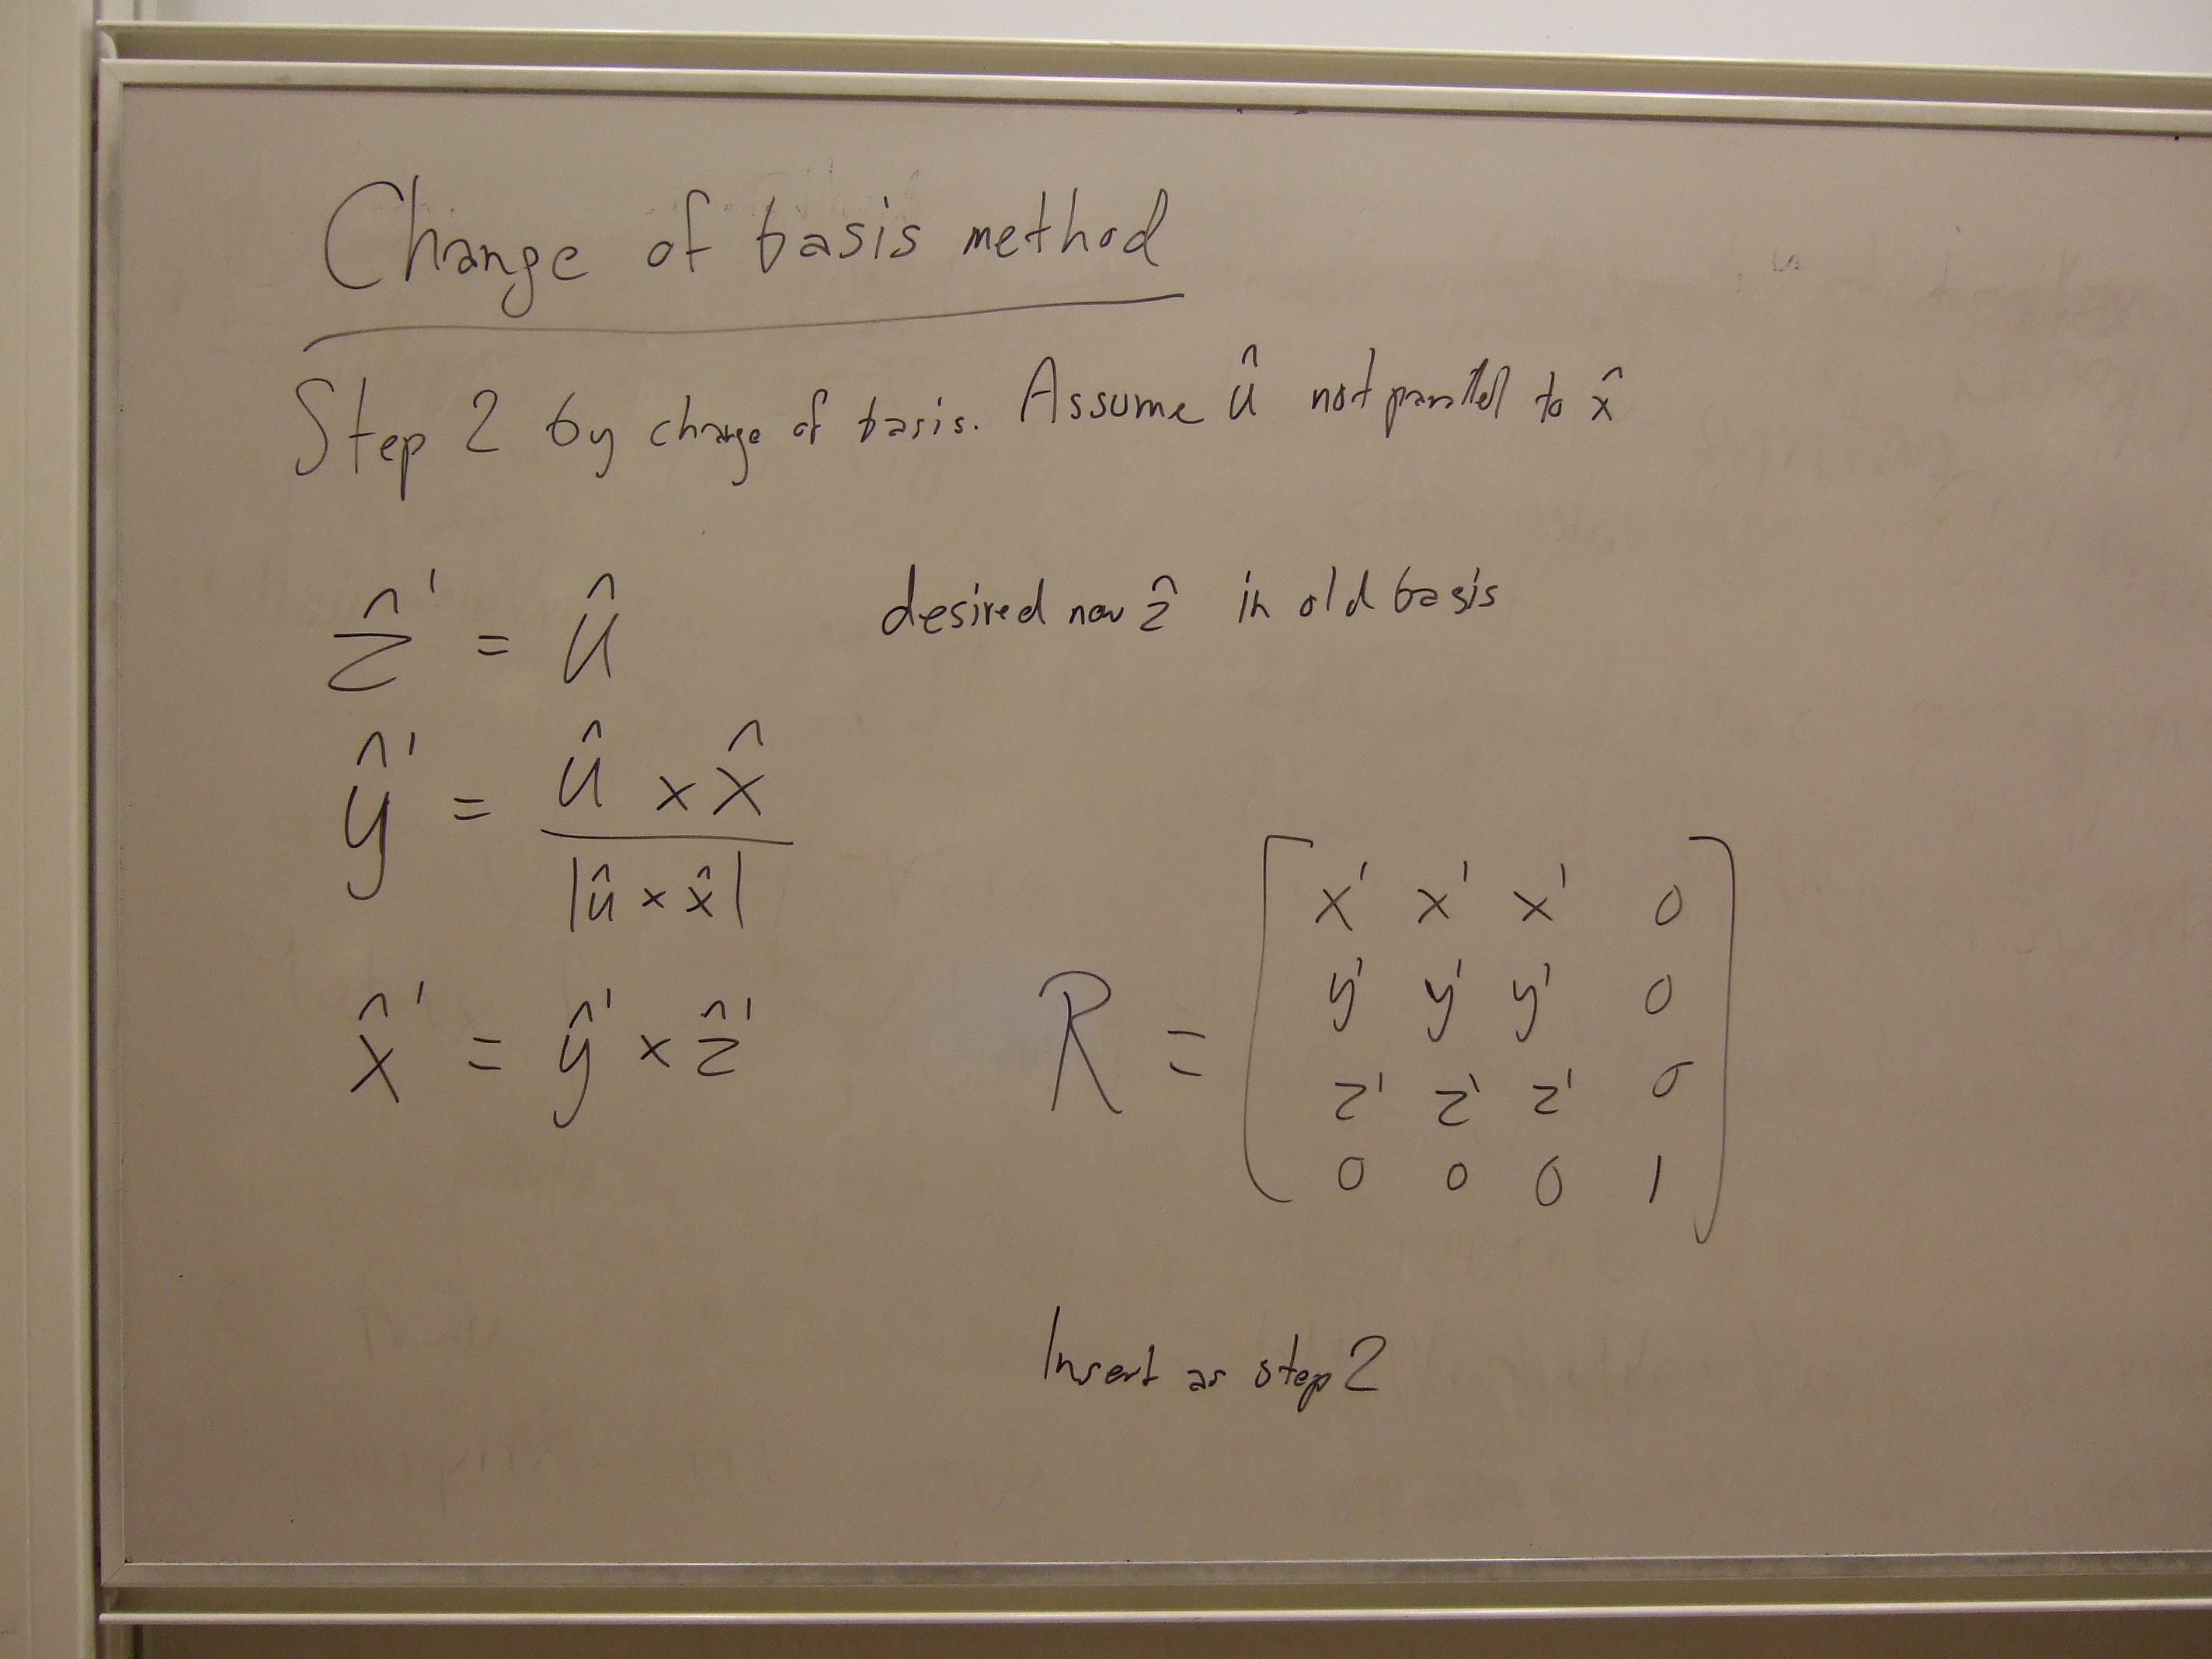 Change of basis method
Step 2 by change of basis. Assume û not parallel to x̂
ẑ' = û desired new ẑ in old basis
ŷ' = û × x̂
|û × x̂|
x̂' = ŷ' × ẑ'
R =
x' x' x' 0
y' y' y' 0
z' z' z' 0
0 0 0 1
Insert as step 2